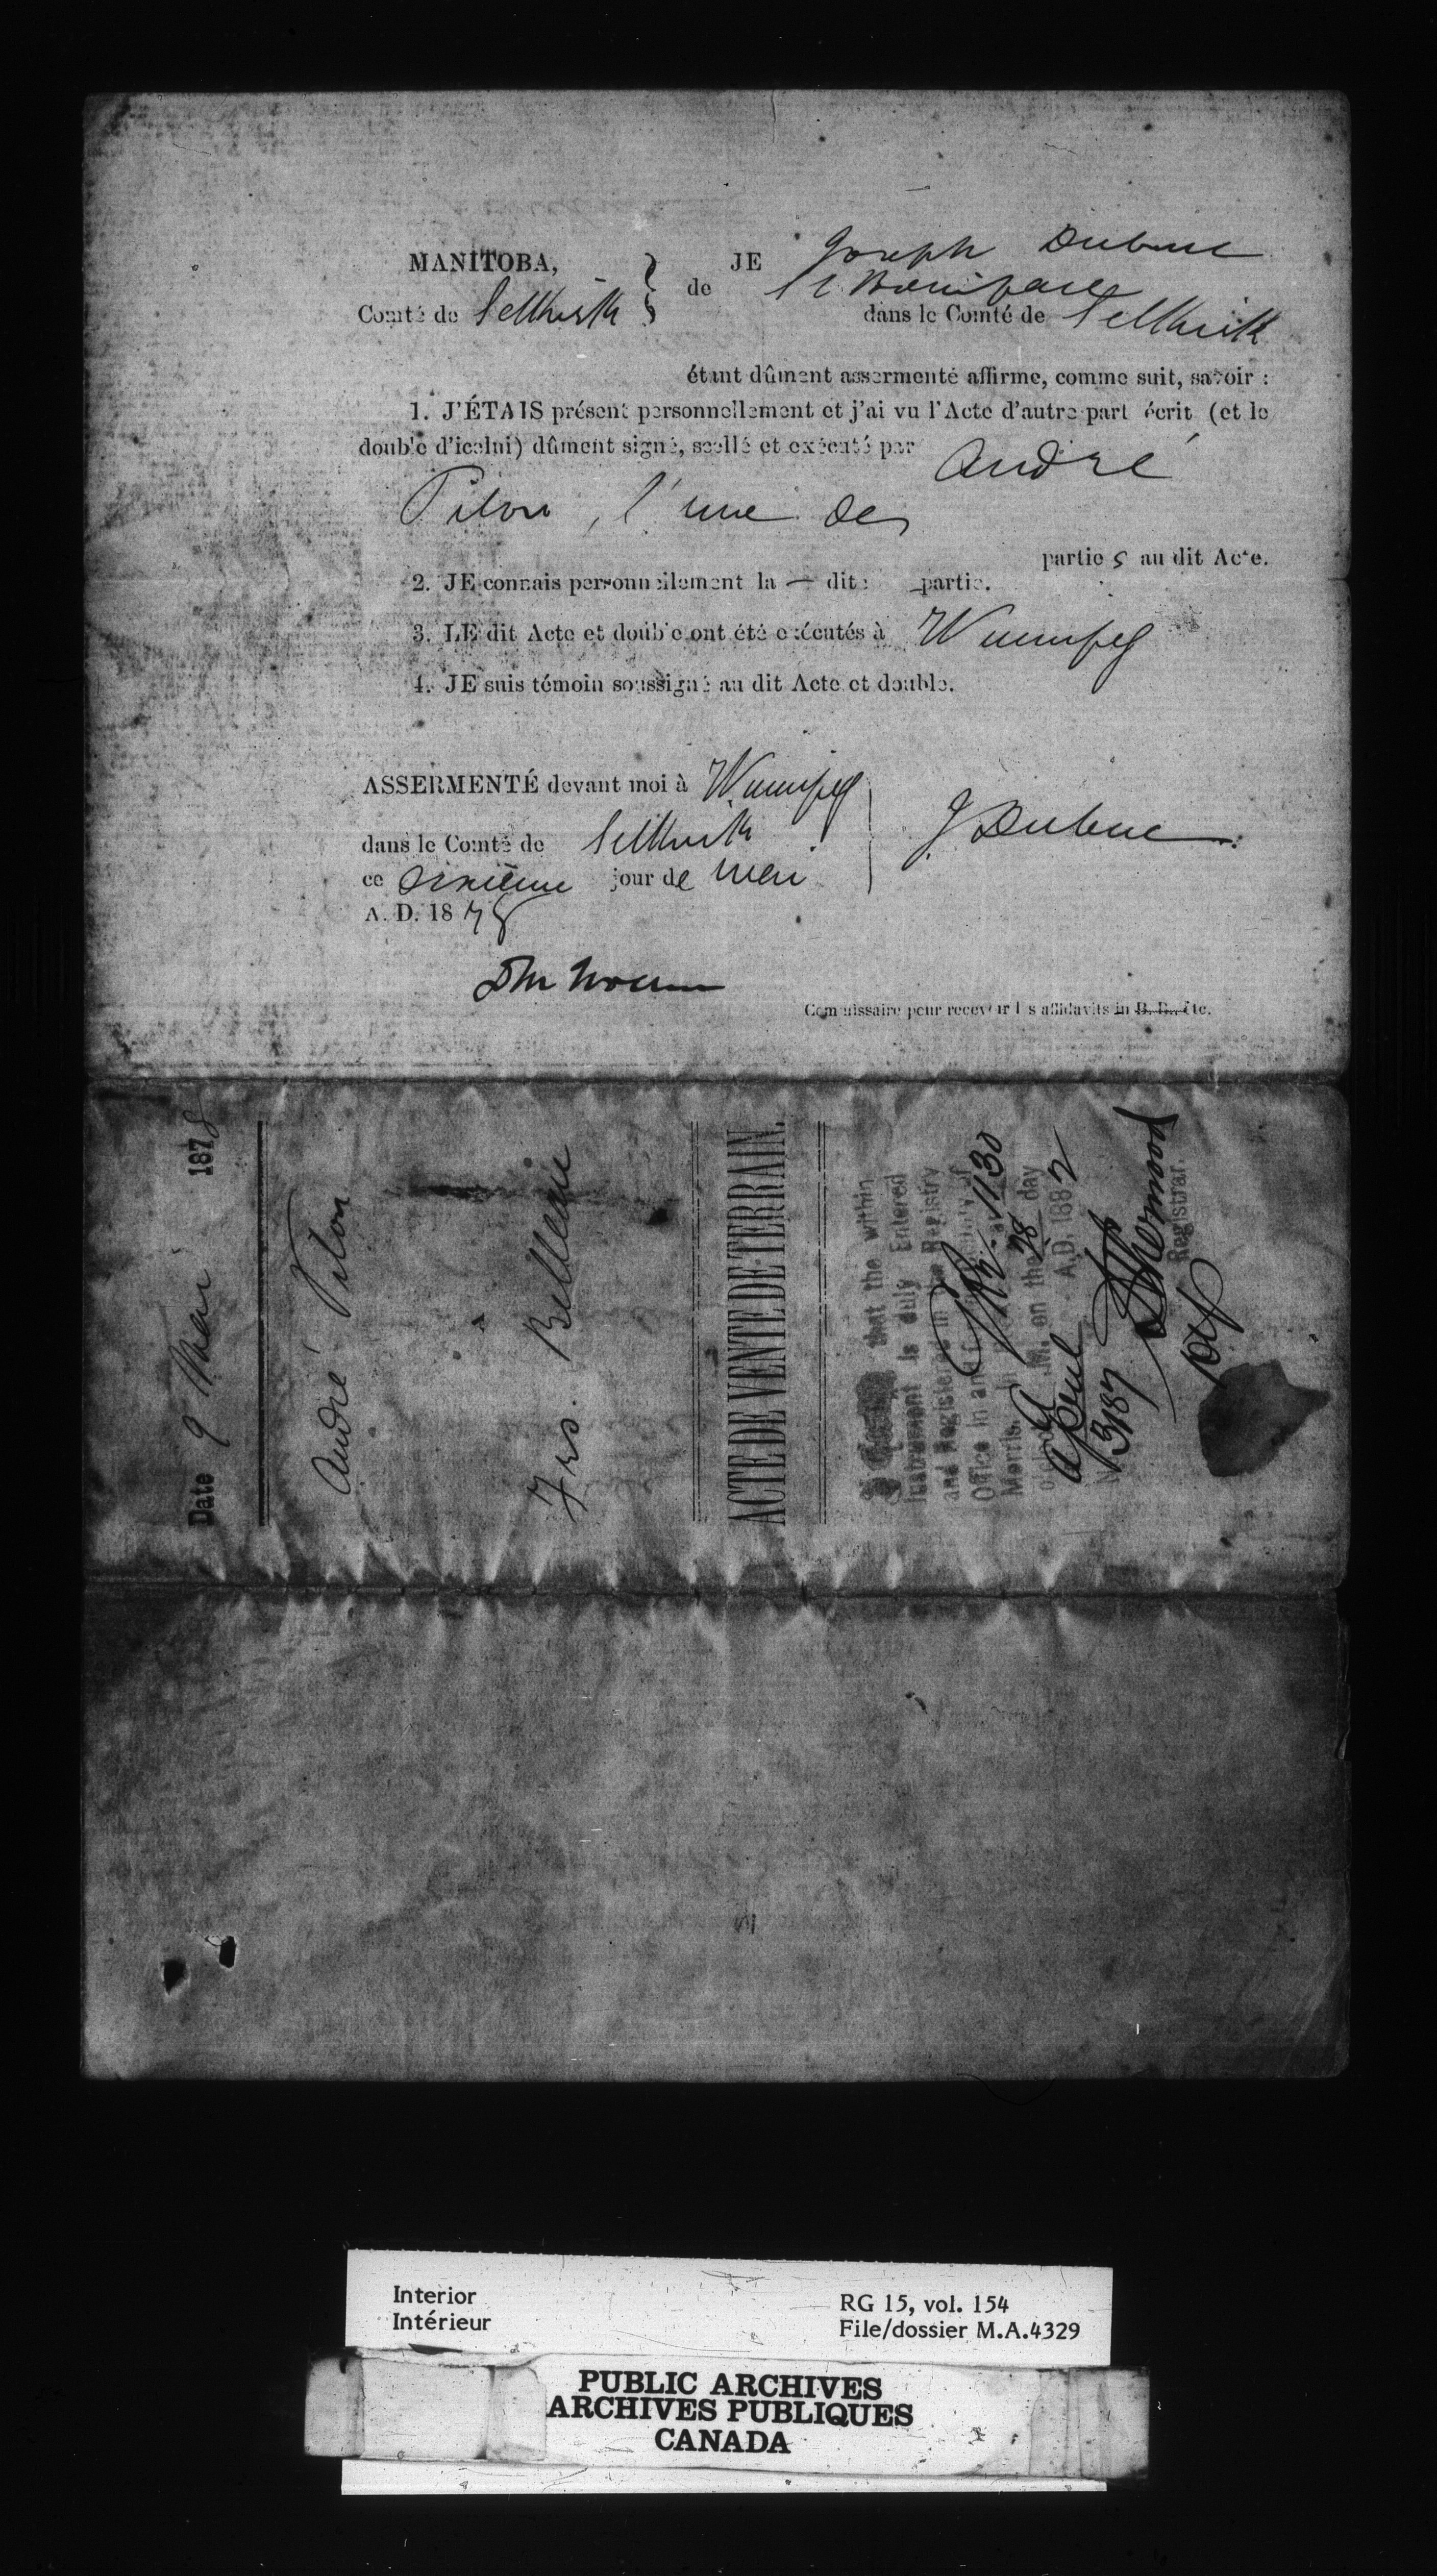 MANITOBA,
Comté de Selkirk
JE Joseph Dubuc
de St Boniface
dans le Comté de Selkirk
étant dûment assermenté affirme, comme suit, savoir :
1. J'ÉTAIS présent personnellement et j'ai vu l'Acte d'autre part écrit (et le
double d'icelui) dûment signé, scellé et exécuté par André
Pilon, l'une des
parties au dit Acte.
2. JE connais personnellement la — dite partie.
3. LE dit Acte et double ont été exécutés à Winnipeg
4. JE suis témoin soussigné au dit Acte et double.
ASSERMENTÉ devant moi à Winnipeg
dans le Comté de Selkirk
ce sixième jour de mai
A. D. 1878
J. Dubuc
Commissaire pour recevoir les affidavits in B. R. etc.
Date 9 Mai 1878
André Pilon
à
Frs. Belleau
ACTE DE VENTE DE TERRAIN.
that the within
Instrument is duly Entered
and Registered in the Registry
Office in and for the County of
Morris, in at 11.30
o'clock M. on the 28 day
April A.D. 1882
3187
Registrar.
Interior
Intérieur
RG 15, vol. 154
File/dossier M.A.4329
PUBLIC ARCHIVES
ARCHIVES PUBLIQUES
CANADA